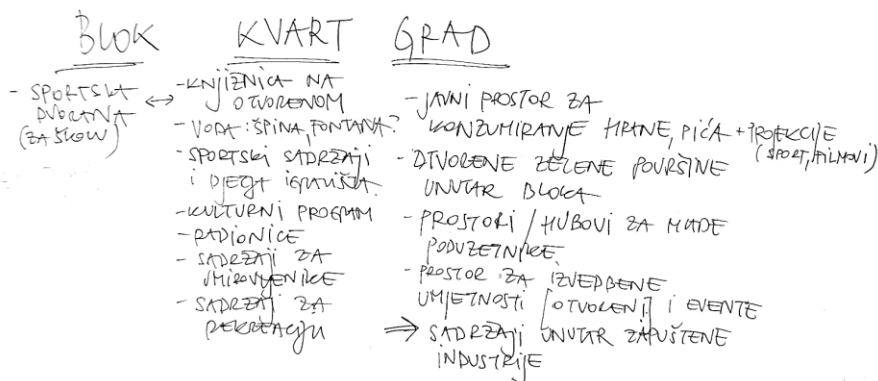 BLOK
- SPORTSKA
DVORANA
(ZA ŠKOLU)
↔
KVART
- KNJIŽNICA NA
OTVORENOM
- VODA: ŠPINA, FONTANA?
- SPORTSKI SADRŽAJI
I DJEČJA IGRALIŠTA
- KULTURNI PROGRAM
- RADIONICE
- SADRŽAJI ZA
UMIROVLJENIKE
- SADRŽAJ ZA
REKREACIJU
GRAD
- JAVNI PROSTOR ZA
KONZUMIRANJE HRANE, PIĆA + PROJEKCIJE
(SPORT, FILMOVI)
- OTVORENE ZELENE POVRŠINE
UNUTAR BLOKA
- PROSTORI / HUBOVI ZA MLADE
PODUZETNIKE
- PROSTOR ZA IZVEDBENE
UMJETNOSTI [OTVORENI] I EVENTE
⇒ SADRŽAJI UNUTAR ZAPUŠTENE
INDUSTRIJE